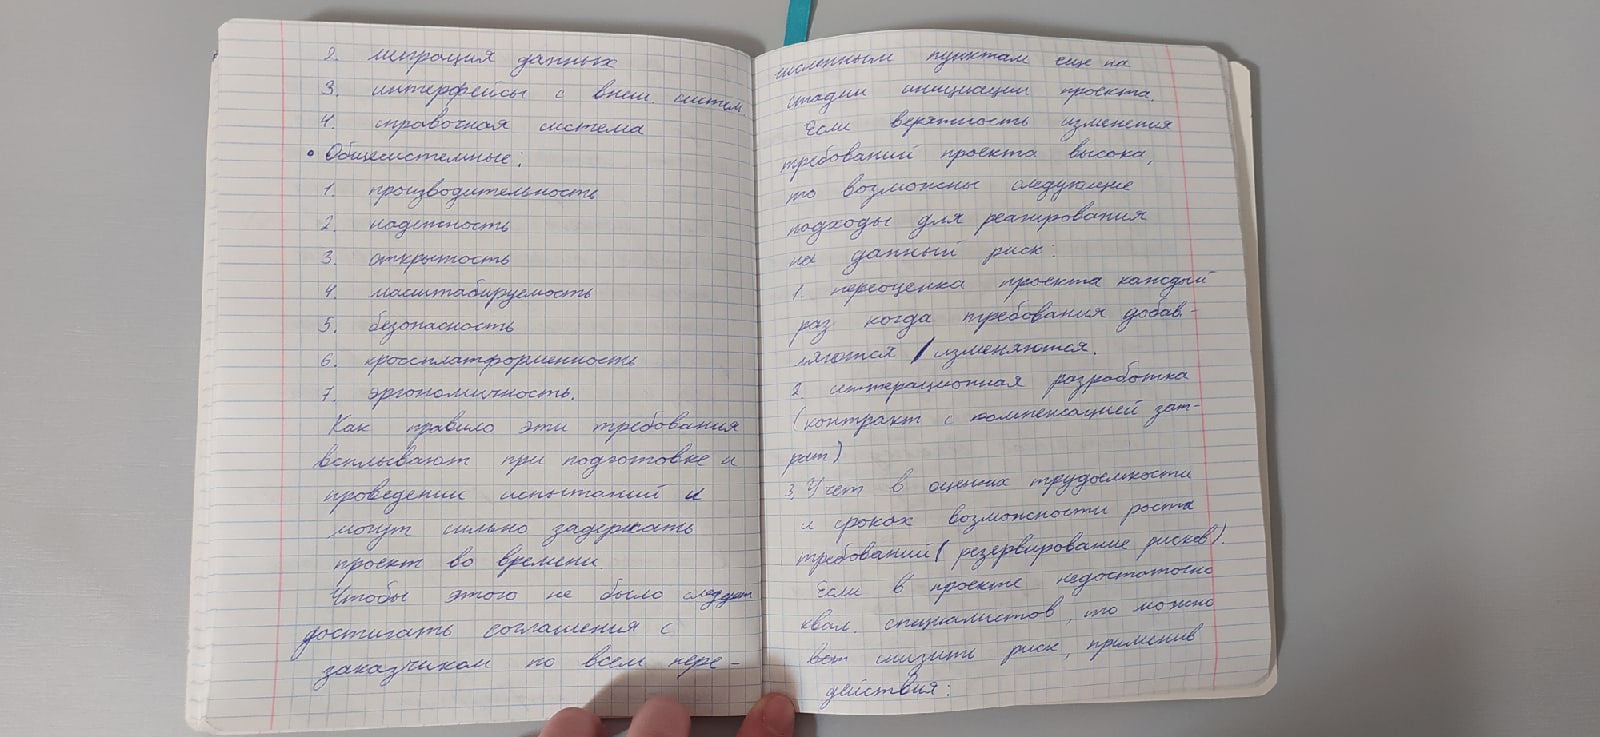 2. миграция данных
3. интерфейсы с внеш. систем.
4. справочная система
• Общесистемные:
1. производительность
2. надежность
3. открытость
4. масштабируемость
5. безопасность
6. кроссплатформенность
7. эргономичность.
Как правило эти требования
всплывают при подготовке и
проведении испытаний и
могут сильно задержать
проект во времени.
Чтобы этого не было следует
достигать соглашения с
заказчиком по всем пере-
численным пунктам еще на
стадии инициации проекта.
Если вероятность изменения
требований проекта высока,
то возможны следующие
подходы для реагирования
на данный риск:
1. переоценка проекта каждый
раз когда требования добав-
ляются / изменяются.
2. интерационная разработка
(контракт с компенсацией зат-
рат)
3. Учет в оценках трудоемкости
и сроках возможности роста
требований (резервирование рисков).
Если в проекте недостаточно
квал. специалистов, то можно
снизить риск, применив
действия: